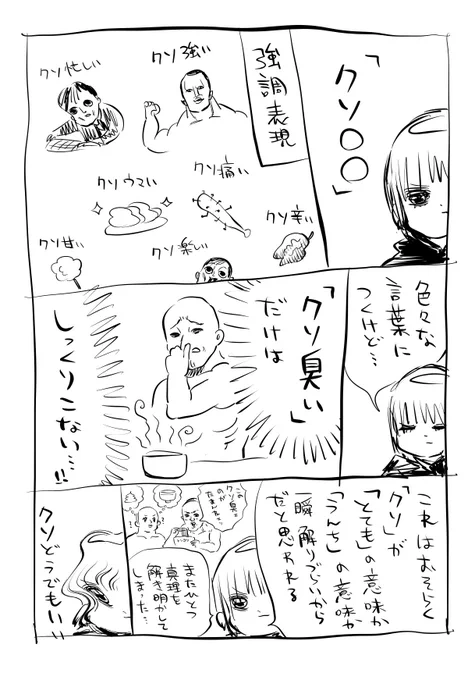 「クソ〇〇」
強調表現
クソ強い
クソ忙しい
クソ痛い
クソウマい
クソ辛い
クソ楽しい
クソ甘い
色々な
言葉に
つくけど…
「クソ臭い」
だけは
しっくりこない…!!
これはおそらく
「クソ」が
「とても」の意味か
「うんち」の意味か
一瞬解りづらいから
だと思われる
またひとつ
真理を
解き明かして
しまった…
クソどうでもいい